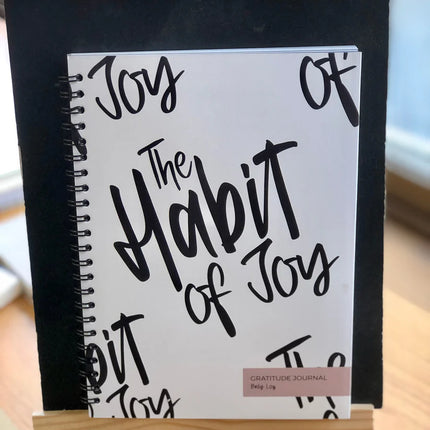 Joy of
The
Habit
of Joy
bit The
Joy
GRATITUDE JOURNAL